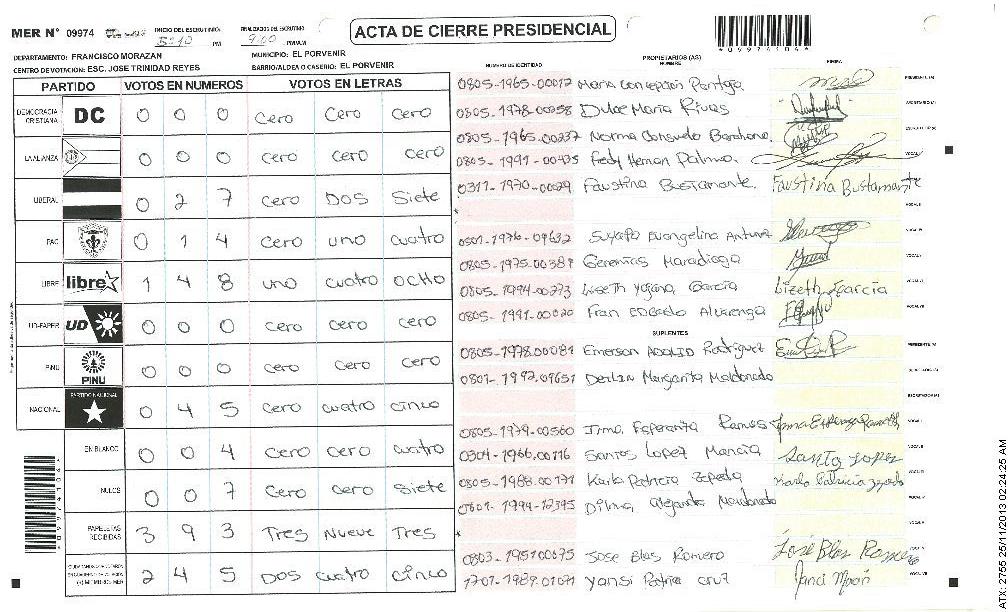 MER N° 09974 INICIO DEL ESCRUTINIO: 5:10 PM FINALIZADOS DEL ESCRUTINIO 9:00 PM/A.M ACTA DE CIERRE PRESIDENCIAL
DEPARTAMENTO: FRANCISCO MORAZAN MUNICIPIO: EL PORVENIR
CENTRO DE VOTACION: ESC. JOSE TRINIDAD REYES BARRIO/ALDEA O CASERIO: EL PORVENIR
PARTIDO VOTOS EN NUMEROS VOTOS EN LETRAS
DEMOCRACIA CRISTIANA DC 0 0 0 Cero Cero Cero
LA ALIANZA 0 0 0 Cero Cero Cero
LIBERAL 0 2 7 Cero DOS Siete
PAC 0 1 4 Cero uno cuatro
LIBRE libre 1 4 8 uno cuatro OCHO
UD-FAPER UD 0 0 0 Cero Cero Cero
PINU PINU 0 0 0 Cero Cero Cero
NACIONAL PARTIDO NACIONAL 0 4 5 Cero cuatro cinco
EN BLANCO 0 0 4 Cero Cero cuatro
NULOS 0 0 7 Cero Cero Siete
PAPELETAS RECIBIDAS 3 9 3 Tres Nueve Tres
2 4 5 DOS cuatro cinco
PROPIETARIOS (AS)
NUMERO DE IDENTIDAD NOMBRE FIRMA
0805-1965-00012 Maria Concepcion Pantoja
0805-1978-00058 Dulce Maria Rivas
0805-1965-00237 Norma Consuelo Barahona
0805-1991-00435 Fedy Hernan Palma.
0311-1970-00029 Faustina Bustamante. Faustina Bustamante
0801-1976-09632 Suyapa Evangelina Antunez
0805-1975-00389 Geremias Maradiaga
0805-1994-00273 Liseth Yojana Garcia Lizeth Garcia
0805-1991-00020 Fran Edgardo Alvarenga
SUPLENTES
0805-1978-00081 Emerson ADOLFO Rodriguez
0801-1992-09651 Derlin Margarita Maldonado
0805-1979-00560 Irma Esperanza Ramos
0304-1966-00116 Santos Lopez Mancia Santo Lopez
0805-1988-00171 Karla Patricia Zepeda Karla Patricia Zepeda
0801-1994-12395 Dilma Alejandra Maldonado
0803-1951-00075 Jose Blas Romero José Blas Romero
1707-1989-01071 Yansi Patria Cruz
ATX: 2755 25/11/2013 02:24:25 AM